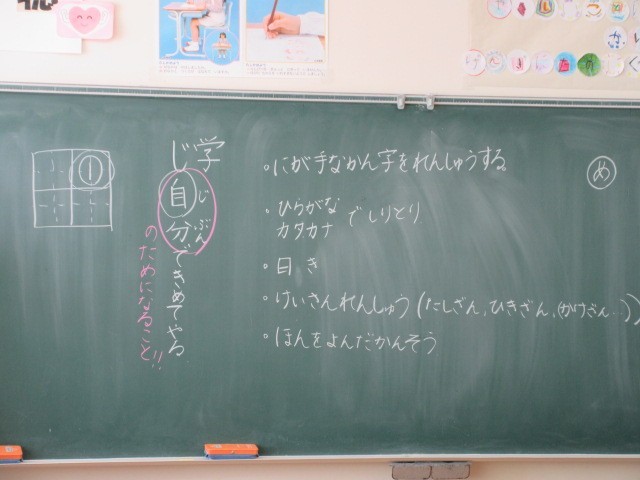 ①
じ学
自分できめてやる
じぶん
のためになること!!
。にが手なかん字をれんしゅうする
。ひらがな
カタカナ
でしりとり
。日き
。けいさんれんしゅう(たしざん、ひきざん、(かけざん…))
。ほんをよんだかんそう
め